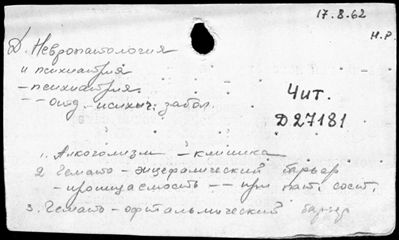 17.8.62
Н.Р.
Д. Невропатология
и психиатрия
– психиатрия
– – отд. психич. забол.
Чит.
Д27181
1. Алкоголизм – клиника
2 Гемато – энцефалический барьер
– проницаемость – – при пат. сост.
3. Гемато – офтальмический барьер